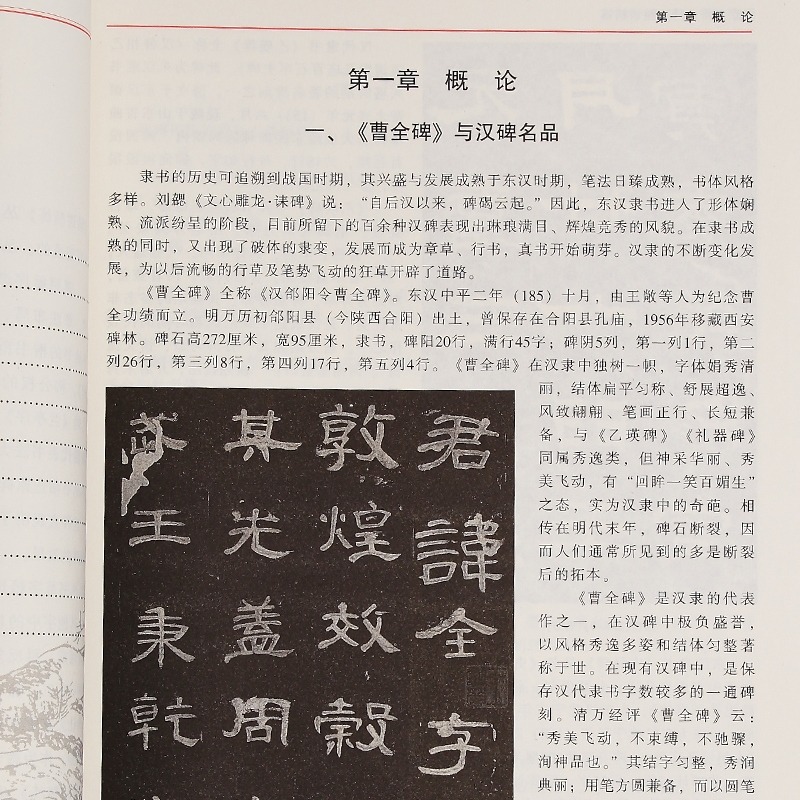 第一章 概 论
第一章 概 论
一、《曹全碑》与汉碑名品
隶书的历史可追溯到战国时期，其兴盛与发展成熟于东汉时期，笔法日臻成熟，书体风格
多样。刘勰《文心雕龙·诔碑》说：“自后汉以来，碑碣云起。”因此，东汉隶书进入了形体娴
熟、流派纷呈的阶段，日前所留下的百余种汉碑表现出琳琅满目、辉煌竞秀的风貌。在隶书成
熟的同时，又出现了破体的隶变，发展而成为章草、行书，真书开始萌芽。汉隶的不断变化发
展，为以后流畅的行草及笔势飞动的狂草开辟了道路。
《曹全碑》全称《汉郃阳令曹全碑》。东汉中平二年（185）十月，由王敞等人为纪念曹
全功绩而立。明万历初郃阳县（今陕西合阳）出土，曾保存在合阳县孔庙，1956年移藏西安
碑林。碑石高272厘米，宽95厘米，隶书，碑阳20行，满行45字；碑阴5列，第一列1行，第二
列26行，第三列8行，第四列17行，第五列4行。《曹全碑》在汉隶中独树一帜，字体娟秀清
丽，结体扁平匀称、舒展超逸、
风致翩翩、笔画正行、长短兼
备，与《乙瑛碑》《礼器碑》
同属秀逸类，但神采华丽、秀
美飞动，有“回眸一笑百媚生”
之态，实为汉隶中的奇葩。相
传在明代末年，碑石断裂，因
而人们通常所见到的多是断裂
后的拓本。
《曹全碑》是汉隶的代表
作之一，在汉碑中极负盛誉，
以风格秀逸多姿和结体匀整著
称于世。在现有汉碑中，是保
存汉代隶书字数较多的一通碑
刻。清万经评《曹全碑》云：
“秀美飞动，不束缚，不驰骤，
洵神品也。”其结字匀整，秀润
典丽；用笔方圆兼备，而以圆笔
君諱全字
敦煌效穀
其先蓋周
武王秉乾